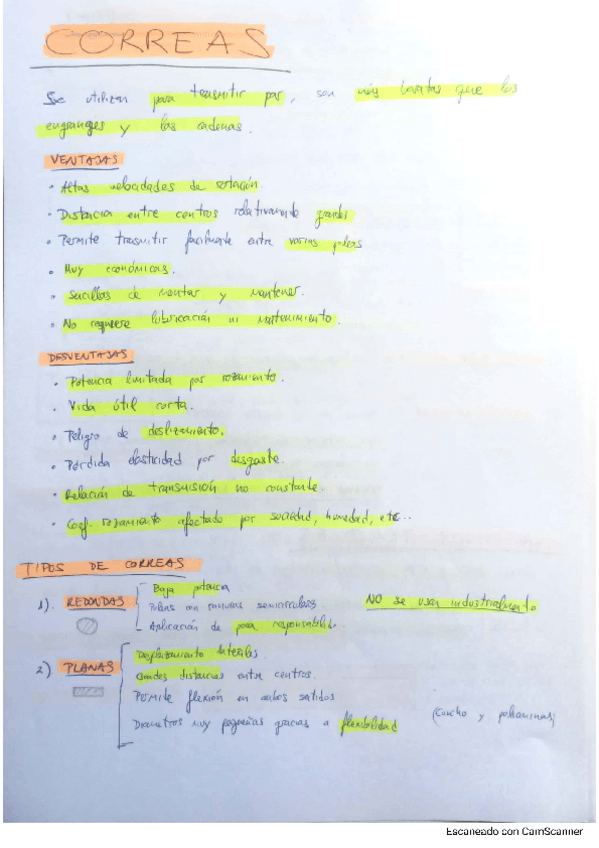 CORREAS
Se utilizan para transmitir par, son más baratas que los
engranajes y las cadenas.
VENTAJAS
• Altas velocidades de rotación.
• Distancia entre centros relativamente grandes
• Permite transmitir facilmente entre varias poleas
• Muy económicas.
• Sencillas de montar y mantener.
• No requiere lubricación ni mantenimiento.
DESVENTAJAS
• Potencia limitada por rozamiento.
• Vida útil corta.
• Peligro de deslizamiento.
• Pérdida elasticidad por desgaste.
• Relación de transmisión no constante
• Coef. rozamiento afectado por suciedad, humedad, etc...
TIPOS DE CORREAS
1). REDONDAS
Baja potencia
Poleas con ranuras semicirculares.
Aplicación de poca responsabilidad.
NO se usan industrialmente
2) PLANAS
Desplazamiento laterales.
Grandes distancias entre centros.
Permite flexión en ambos sentidos
Diametros muy pequeños gracias a flexibilidad
(Caucho y poliaminas)
Escaneado con CamScanner